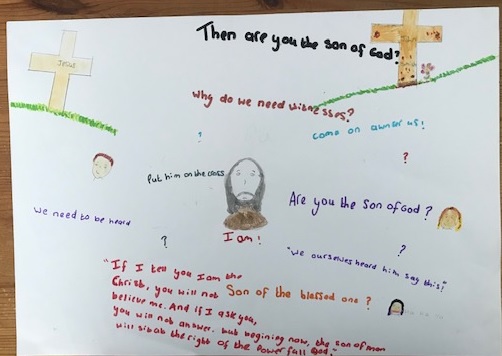 Then are you the son of God?
Jesus
Why do we need witnesses?
?
come on awnser us!
?
Put him on the cross
Are you the son of God?
We need to be heard
?
I am!
?
"We ourselves heard him say this!"
"If I tell you I am the
Christ, you will not
believe me. And if I ask you,
you will not answer. but begining now, the son of man
will sit at the right of the Power full God."
Son of the blessed one?